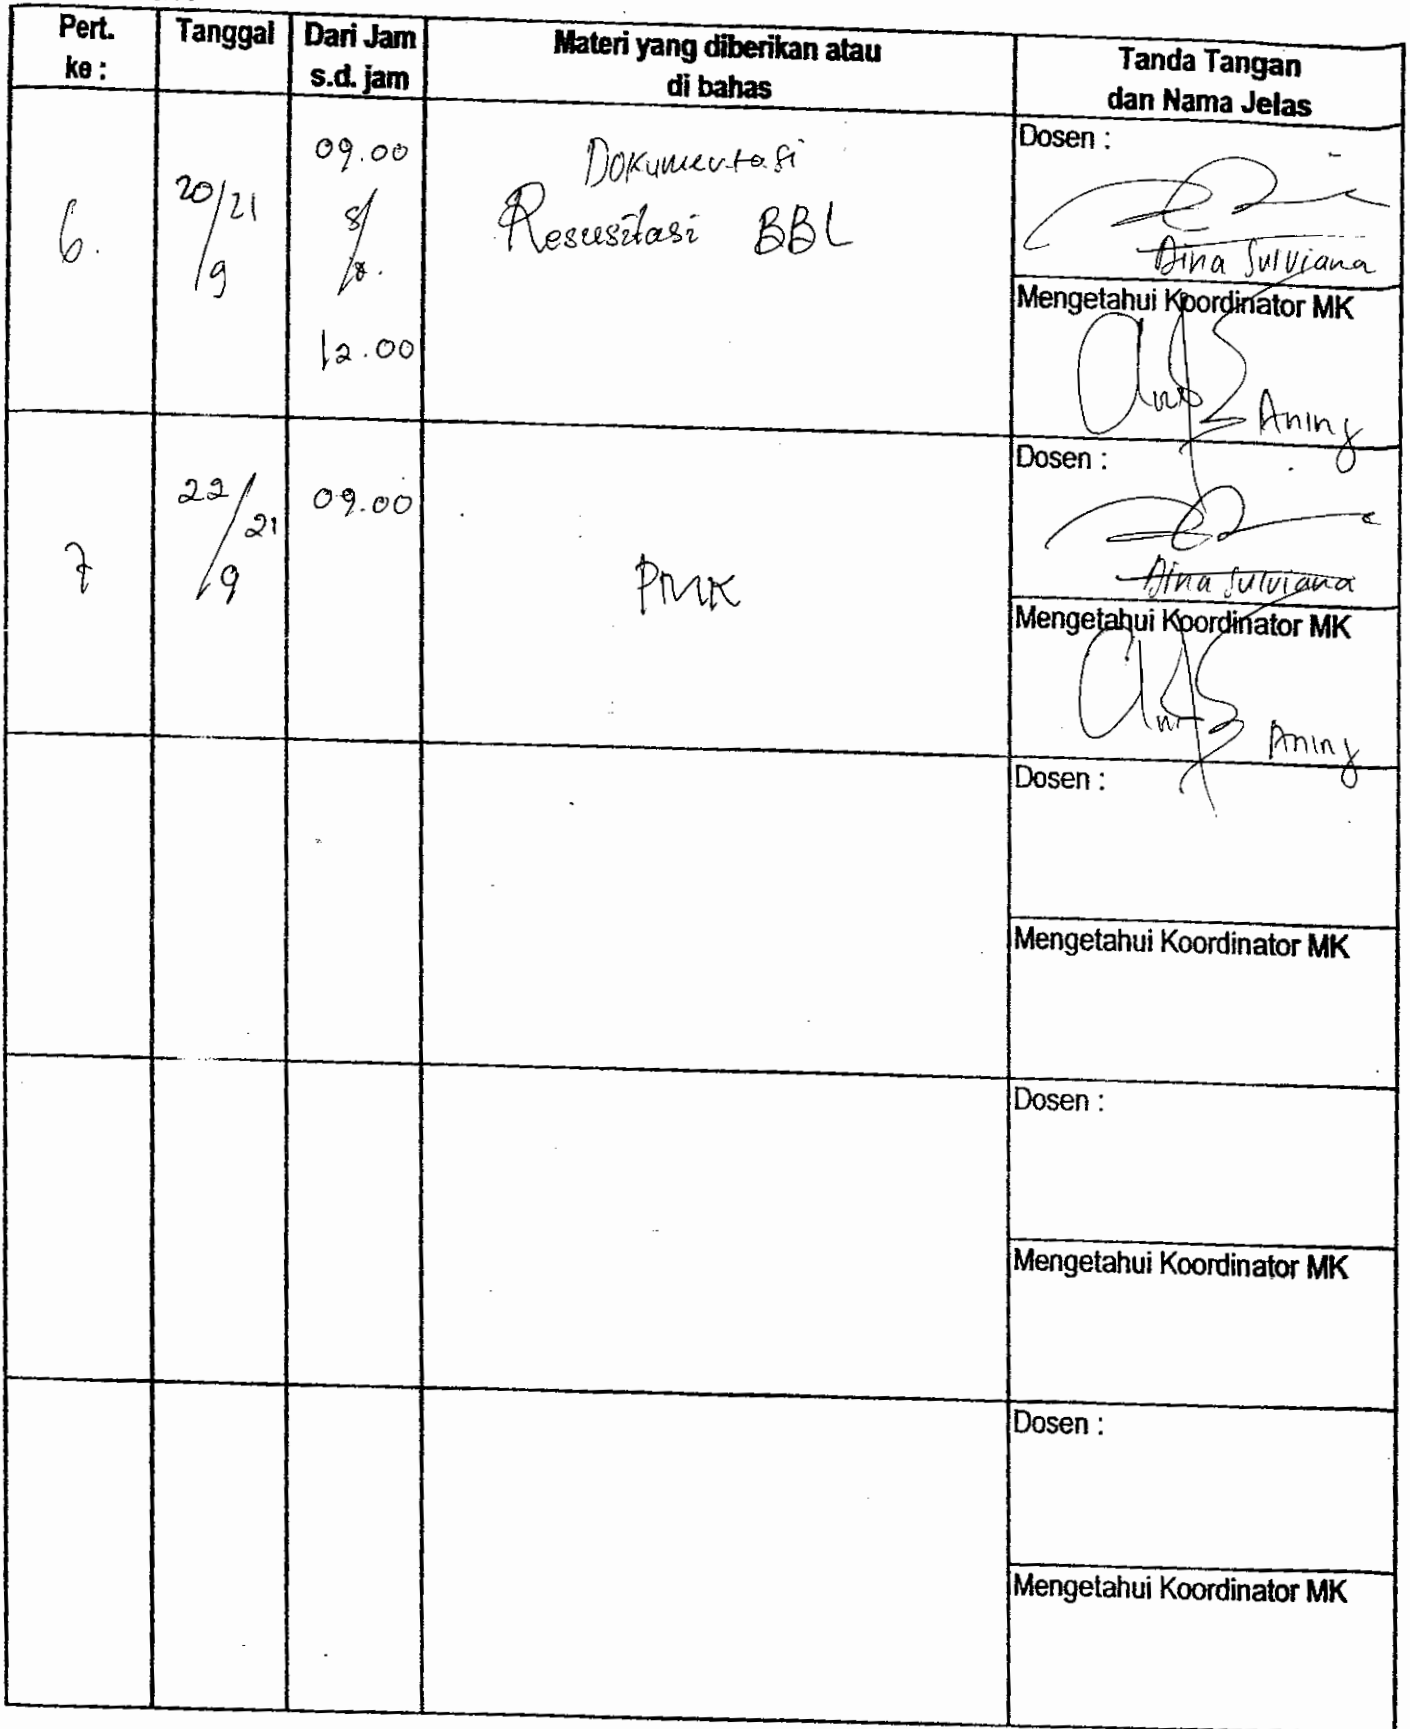 Pert. ke :
Tanggal
Dari Jam s.d. jam
Materi yang diberikan atau di bahas
Tanda Tangan dan Nama Jelas
6.
20/21/9
09.00
s/
12.00
Dokumentasi
Resusitasi BBL
Dosen :
Aina Sulviana
Mengetahui Koordinator MK
Aning
7
22/21/9
09.00
PMK
Dosen :
Aina Sulviana
Mengetahui Koordinator MK
Aning
Dosen :
Mengetahui Koordinator MK
Dosen :
Mengetahui Koordinator MK
Dosen :
Mengetahui Koordinator MK